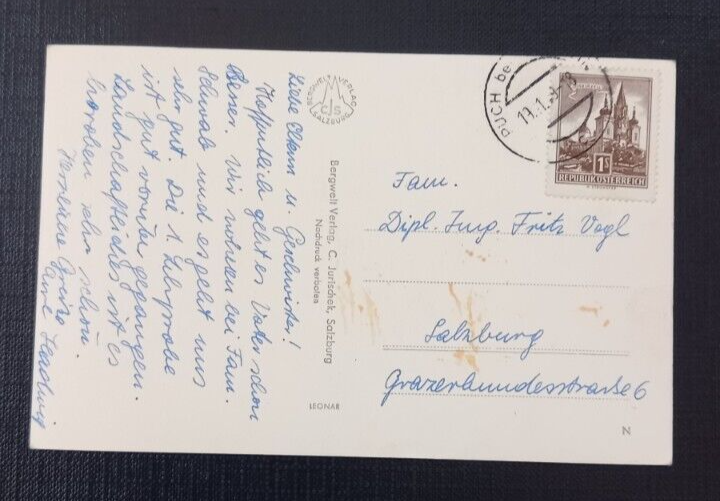 Liebe Eltern u. Geschwister!
Hoffentlich geht es Vater schon
besser. Wir wohnen bei Fam.
Schwab und es geht uns
sehr gut. Die 1. Lehrprobe
ist gut vorüber gegangen.
Landschaftliches ist es
heroben sehr schön.
Herzliche Grüße
BERGWELT VERLAG
SALZBURG
CJS
Bergwelt Verlag, C. Jurischek, Salzburg
Nachdruck verboten
LEONAR
PUCH be
REPUBLIK ÖSTERREICH
1S
Fam.
Dipl. Ing. Fritz Vogl
Salzburg
Grazerbundesstraße 6
N